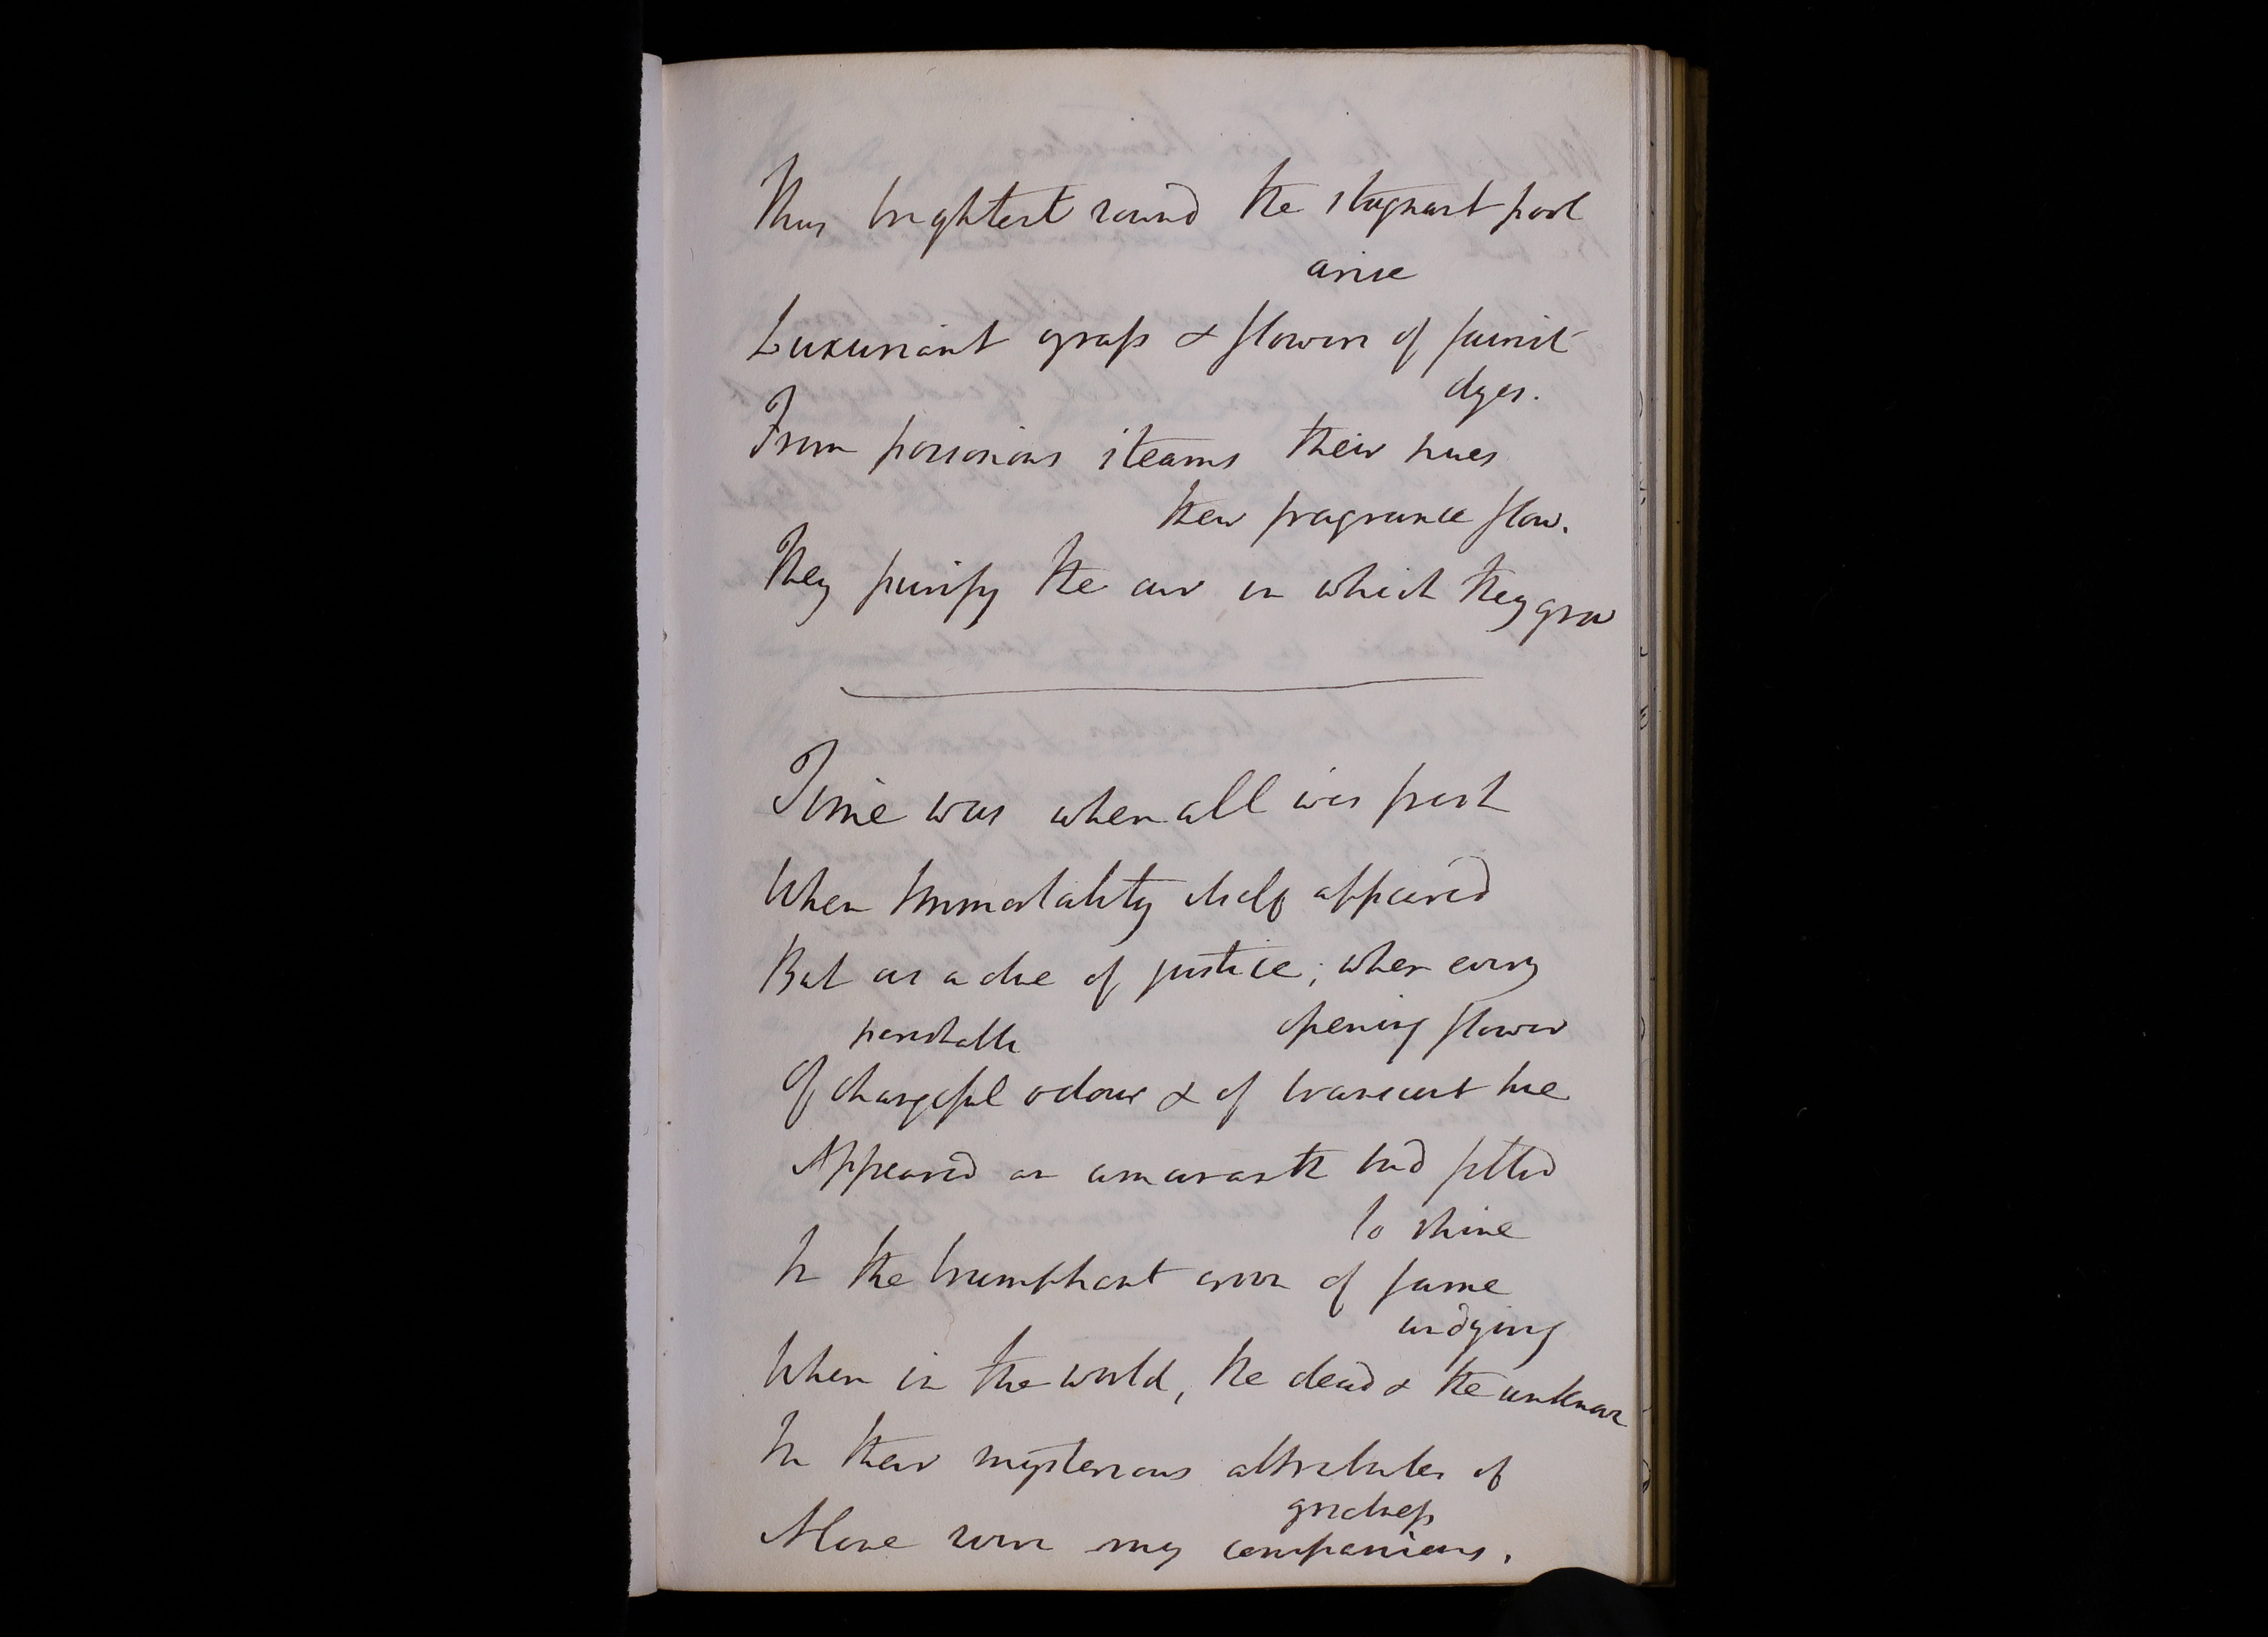 Thus brightest round the stagnant pool
arise
Luxuriant grass & flowers of fairest
dyes.
From poisonous steams their hues
their fragrance flow.
They purify the air in which they grow
Time was when all was fresh
When Immortality itself appeared
But as a due of justice; when every
opening flower
perishable
Of changeful odour & of transient hue
Appeared an amaranth bud fitted
to shine
In the triumphant crown of fame
undying
When in the world, the dead & the unknown
In their mysterious attributes of
goodness
Alone were my companions.